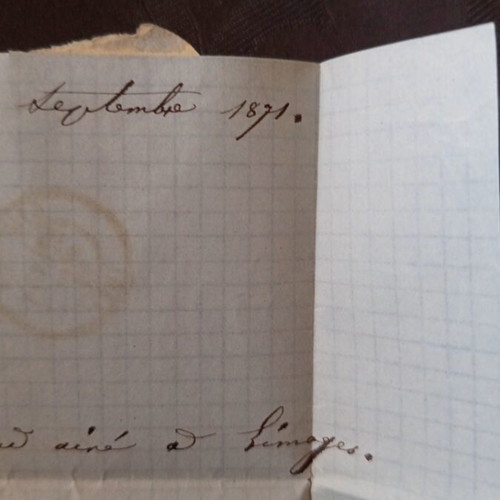 septembre 1871.
ainé à Limoges.